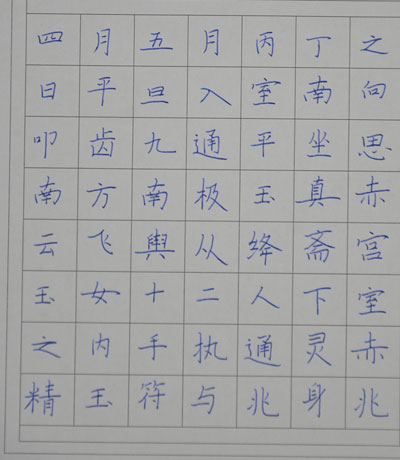 四月五月丙丁之
日平旦入室南向
叩齿九通平坐思
南方南极玉真赤
云飞舆从绛斋宫
玉女十二人下室
之内手执通灵赤
精玉符与兆身兆